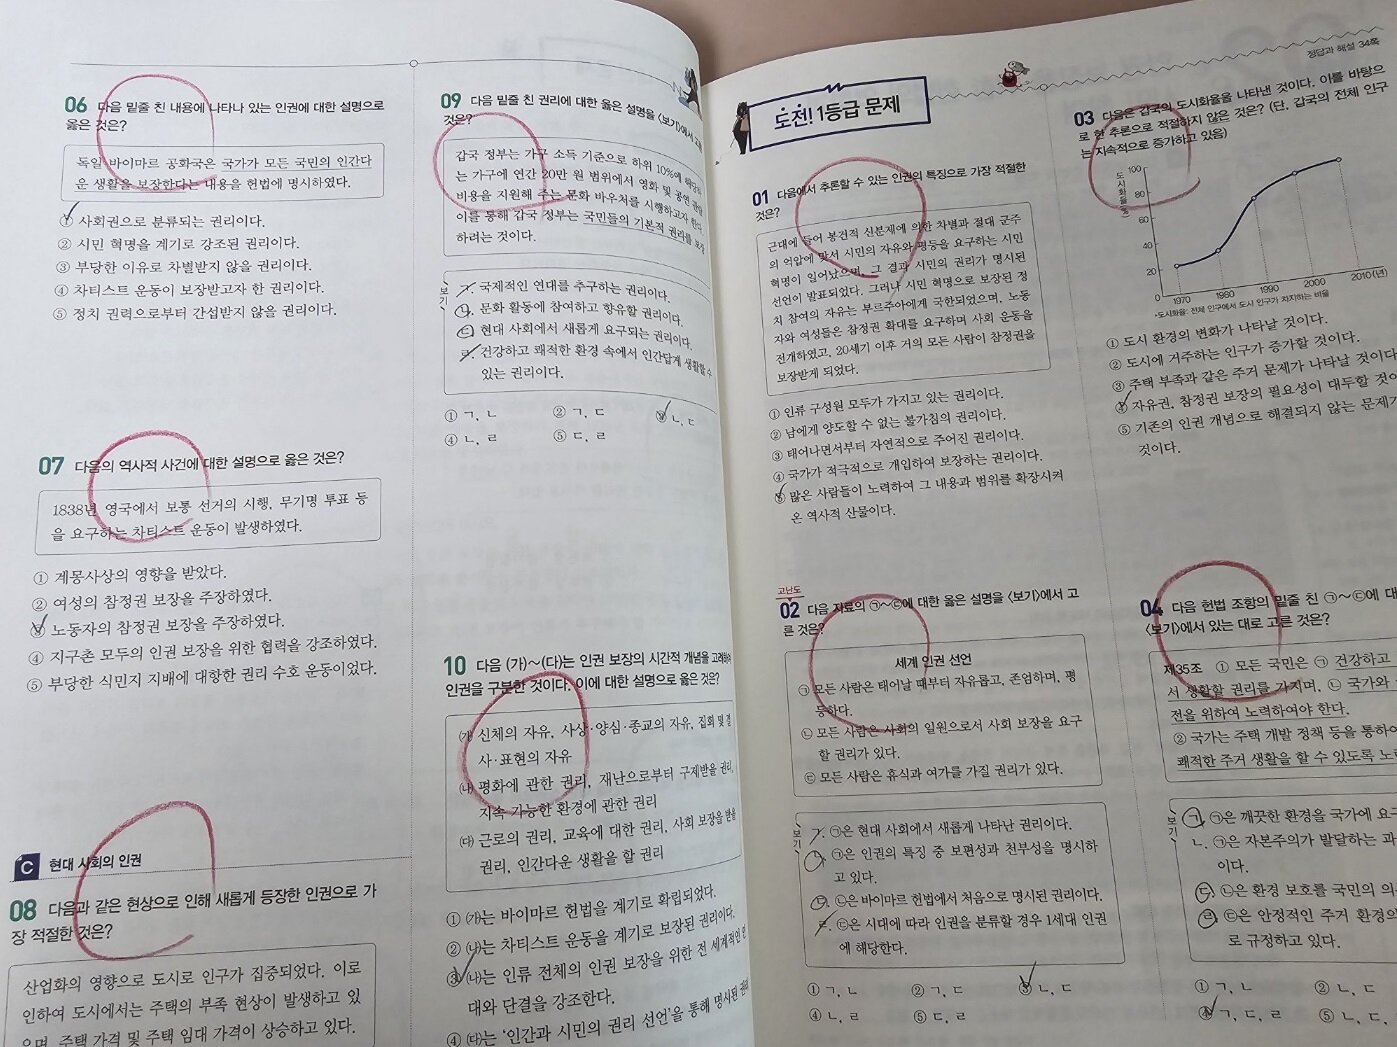 06 다음 밑줄 친 내용에 나타나 있는 인권에 대한 설명으로
옳은 것은?
독일 바이마르 공화국은 국가가 모든 국민의 인간다
운 생활을 보장한다는 내용을 헌법에 명시하였다.
① 사회권으로 분류되는 권리이다.
② 시민 혁명을 계기로 강조된 권리이다.
③ 부당한 이유로 차별받지 않을 권리이다.
④ 차티스트 운동이 보장받고자 한 권리이다.
⑤ 정치 권력으로부터 간섭받지 않을 권리이다.
07 다음의 역사적 사건에 대한 설명으로 옳은 것은?
1838년 영국에서 보통 선거의 시행, 무기명 투표 등
을 요구하는 차티스트 운동이 발생하였다.
① 계몽사상의 영향을 받았다.
② 여성의 참정권 보장을 주장하였다.
③ 노동자의 참정권 보장을 주장하였다.
④ 지구촌 모두의 인권 보장을 위한 협력을 강조하였다.
⑤ 부당한 식민지 지배에 대항한 권리 수호 운동이었다.
C 현대 사회의 인권
08 다음과 같은 현상으로 인해 새롭게 등장한 인권으로 가
장 적절한 것은?
산업화의 영향으로 도시로 인구가 집중되었다. 이로
인하여 도시에서는 주택의 부족 현상이 발생하고 있
으며, 주택 가격 및 주택 임대 가격이 상승하고 있다.
09 다음 밑줄 친 권리에 대한 옳은 설명을 〈보기〉에서 고
것은?
갑국 정부는 가구 소득 기준으로 하위 10%에 해당하
는 가구에 연간 20만 원 범위에서 영화 및 공연 관람
비용을 지원해 주는 문화 바우처를 시행하고자 한다.
이를 통해 갑국 정부는 국민들의 기본적 권리를 보장
하려는 것이다.
보기
ㄱ. 국제적인 연대를 추구하는 권리이다.
ㄴ. 문화 활동에 참여하고 향유할 권리이다.
ㄷ. 현대 사회에서 새롭게 요구되는 권리이다.
ㄹ. 건강하고 쾌적한 환경 속에서 인간답게 생활할 수
있는 권리이다.
① ㄱ, ㄴ ② ㄱ, ㄷ ③ ㄴ, ㄷ
④ ㄴ, ㄹ ⑤ ㄷ, ㄹ
10 다음 (가)~(다)는 인권 보장의 시간적 개념을 고려하여
인권을 구분한 것이다. 이에 대한 설명으로 옳은 것은?
(가) 신체의 자유, 사상·양심·종교의 자유, 집회 및 결
사·표현의 자유
(나) 평화에 관한 권리, 재난으로부터 구제받을 권리,
지속 가능한 환경에 관한 권리
(다) 근로의 권리, 교육에 대한 권리, 사회 보장을 받을
권리, 인간다운 생활을 할 권리
① (가)는 바이마르 헌법을 계기로 확립되었다.
② (나)는 차티스트 운동을 계기로 보장된 권리이다.
③ (나)는 인류 전체의 인권 보장을 위한 전 세계적인 연
대와 단결을 강조한다.
④ (다)는 '인간과 시민의 권리 선언'을 통해 명시된 권리
정답과 해설 34쪽
도전! 1등급 문제
01 다음에서 추론할 수 있는 인권의 특징으로 가장 적절한
것은?
근대에 들어 봉건적 신분제에 의한 차별과 절대 군주
의 억압에 맞서 시민의 자유와 평등을 요구하는 시민
혁명이 일어났으며, 그 결과 시민의 권리가 명시된
선언이 발표되었다. 그러나 시민 혁명으로 보장된 정
치 참여의 자유는 부르주아에게 국한되었으며, 노동
자와 여성들은 참정권 확대를 요구하며 사회 운동을
전개하였고, 20세기 이후 거의 모든 사람이 참정권을
보장받게 되었다.
① 인류 구성원 모두가 가지고 있는 권리이다.
② 남에게 양도할 수 없는 불가침의 권리이다.
③ 태어나면서부터 자연적으로 주어진 권리이다.
④ 국가가 적극적으로 개입하여 보장하는 권리이다.
⑤ 많은 사람들이 노력하여 그 내용과 범위를 확장시켜
온 역사적 산물이다.
고난도
02 다음 자료의 ㉠~㉢에 대한 옳은 설명을 〈보기〉에서 고
른 것은?
세계 인권 선언
㉠ 모든 사람은 태어날 때부터 자유롭고, 존엄하며, 평
등하다.
㉡ 모든 사람은 사회의 일원으로서 사회 보장을 요구
할 권리가 있다.
㉢ 모든 사람은 휴식과 여가를 가질 권리가 있다.
보기
ㄱ. ㉠은 현대 사회에서 새롭게 나타난 권리이다.
ㄴ. ㉠은 인권의 특징 중 보편성과 천부성을 명시하
고 있다.
ㄷ. ㉡은 바이마르 헌법에서 처음으로 명시된 권리이다.
ㄹ. ㉢은 시대에 따라 인권을 분류할 경우 1세대 인권
에 해당한다.
① ㄱ, ㄴ ② ㄱ, ㄷ ③ ㄴ, ㄷ
④ ㄴ, ㄹ ⑤ ㄷ, ㄹ
03 다음은 갑국의 도시화율을 나타낸 것이다. 이를 바탕으
로 한 추론으로 적절하지 않은 것은? (단, 갑국의 전체 인구
는 지속적으로 증가하고 있음)
도시화율(%)
100
80
60
40
20
0
1970 1980 1990 2000 2010(년)
*도시화율: 전체 인구에서 도시 인구가 차지하는 비율
① 도시 환경의 변화가 나타날 것이다.
② 도시에 거주하는 인구가 증가할 것이다.
③ 주택 부족과 같은 주거 문제가 나타날 것이다
④ 자유권, 참정권 보장의 필요성이 대두할 것이
⑤ 기존의 인권 개념으로 해결되지 않는 문제가
것이다.
04 다음 헌법 조항의 밑줄 친 ㉠~㉢에 대
〈보기〉에서 있는 대로 고른 것은?
제35조 ① 모든 국민은 ㉠ 건강하고
서 생활할 권리를 가지며, ㉡ 국가와
전을 위하여 노력하여야 한다.
② 국가는 주택 개발 정책 등을 통하여
쾌적한 주거 생활을 할 수 있도록 노력
보기
ㄱ. ㉠은 깨끗한 환경을 국가에 요구
ㄴ. ㉠은 자본주의가 발달하는 과
이다.
ㄷ. ㉡은 환경 보호를 국민의 의
ㄹ. ㉢은 안정적인 주거 환경의
로 규정하고 있다.
① ㄱ, ㄴ ② ㄴ, ㄷ
④ ㄱ, ㄷ, ㄹ ⑤ ㄴ, ㄷ,